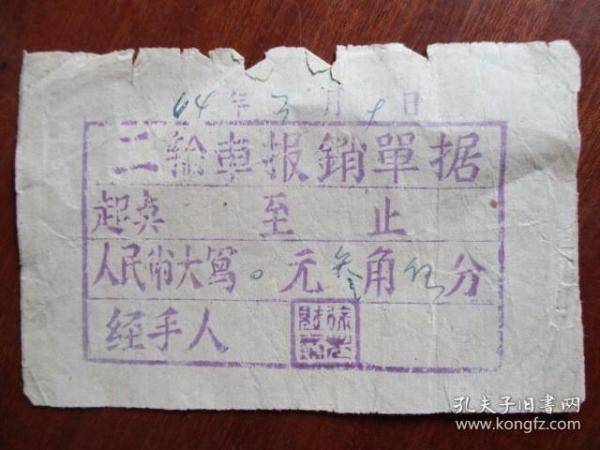 64年3月 日
二輪車报銷單据
起奌 至 止
人民币大写 0元叁角伍分
经手人
孔夫子旧書网
www.kongfz.com